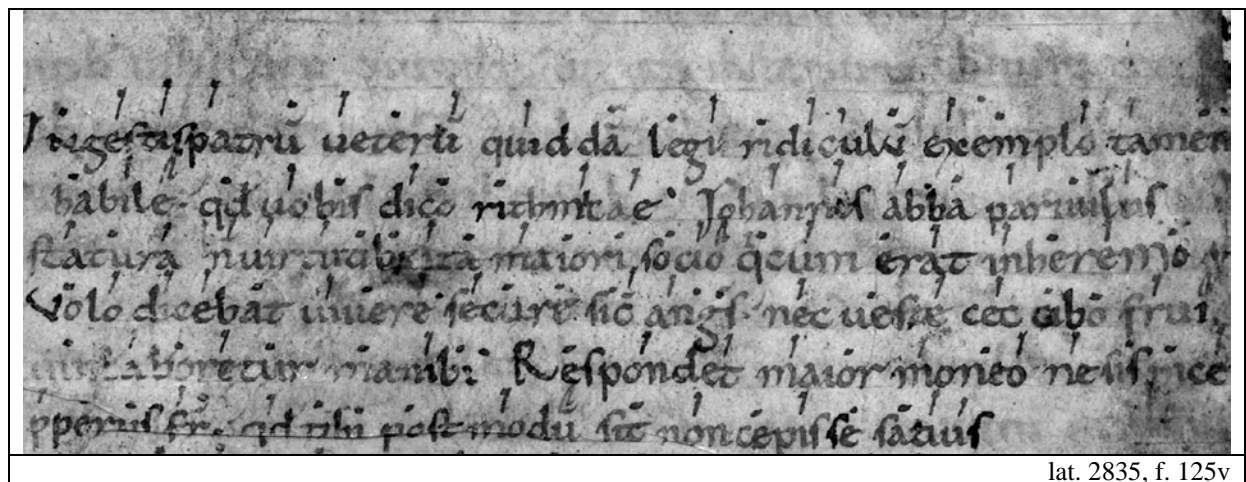 Ingestispatrū ueterū quiddā legi ridiculū exemplo tamen
habile qd uobis dico rithmicae Johannes abba paruulus
statura nuirtutibkita maiori socio qcum erat inheremo
Volo dicebat uiuere secure sic angls nec ueste cec cibo frui
laboretur manib; Respondet maior moneo ne sis
pperus fr qd tibi postmodū sit noncepisse satius
lat. 2835, f. 125v